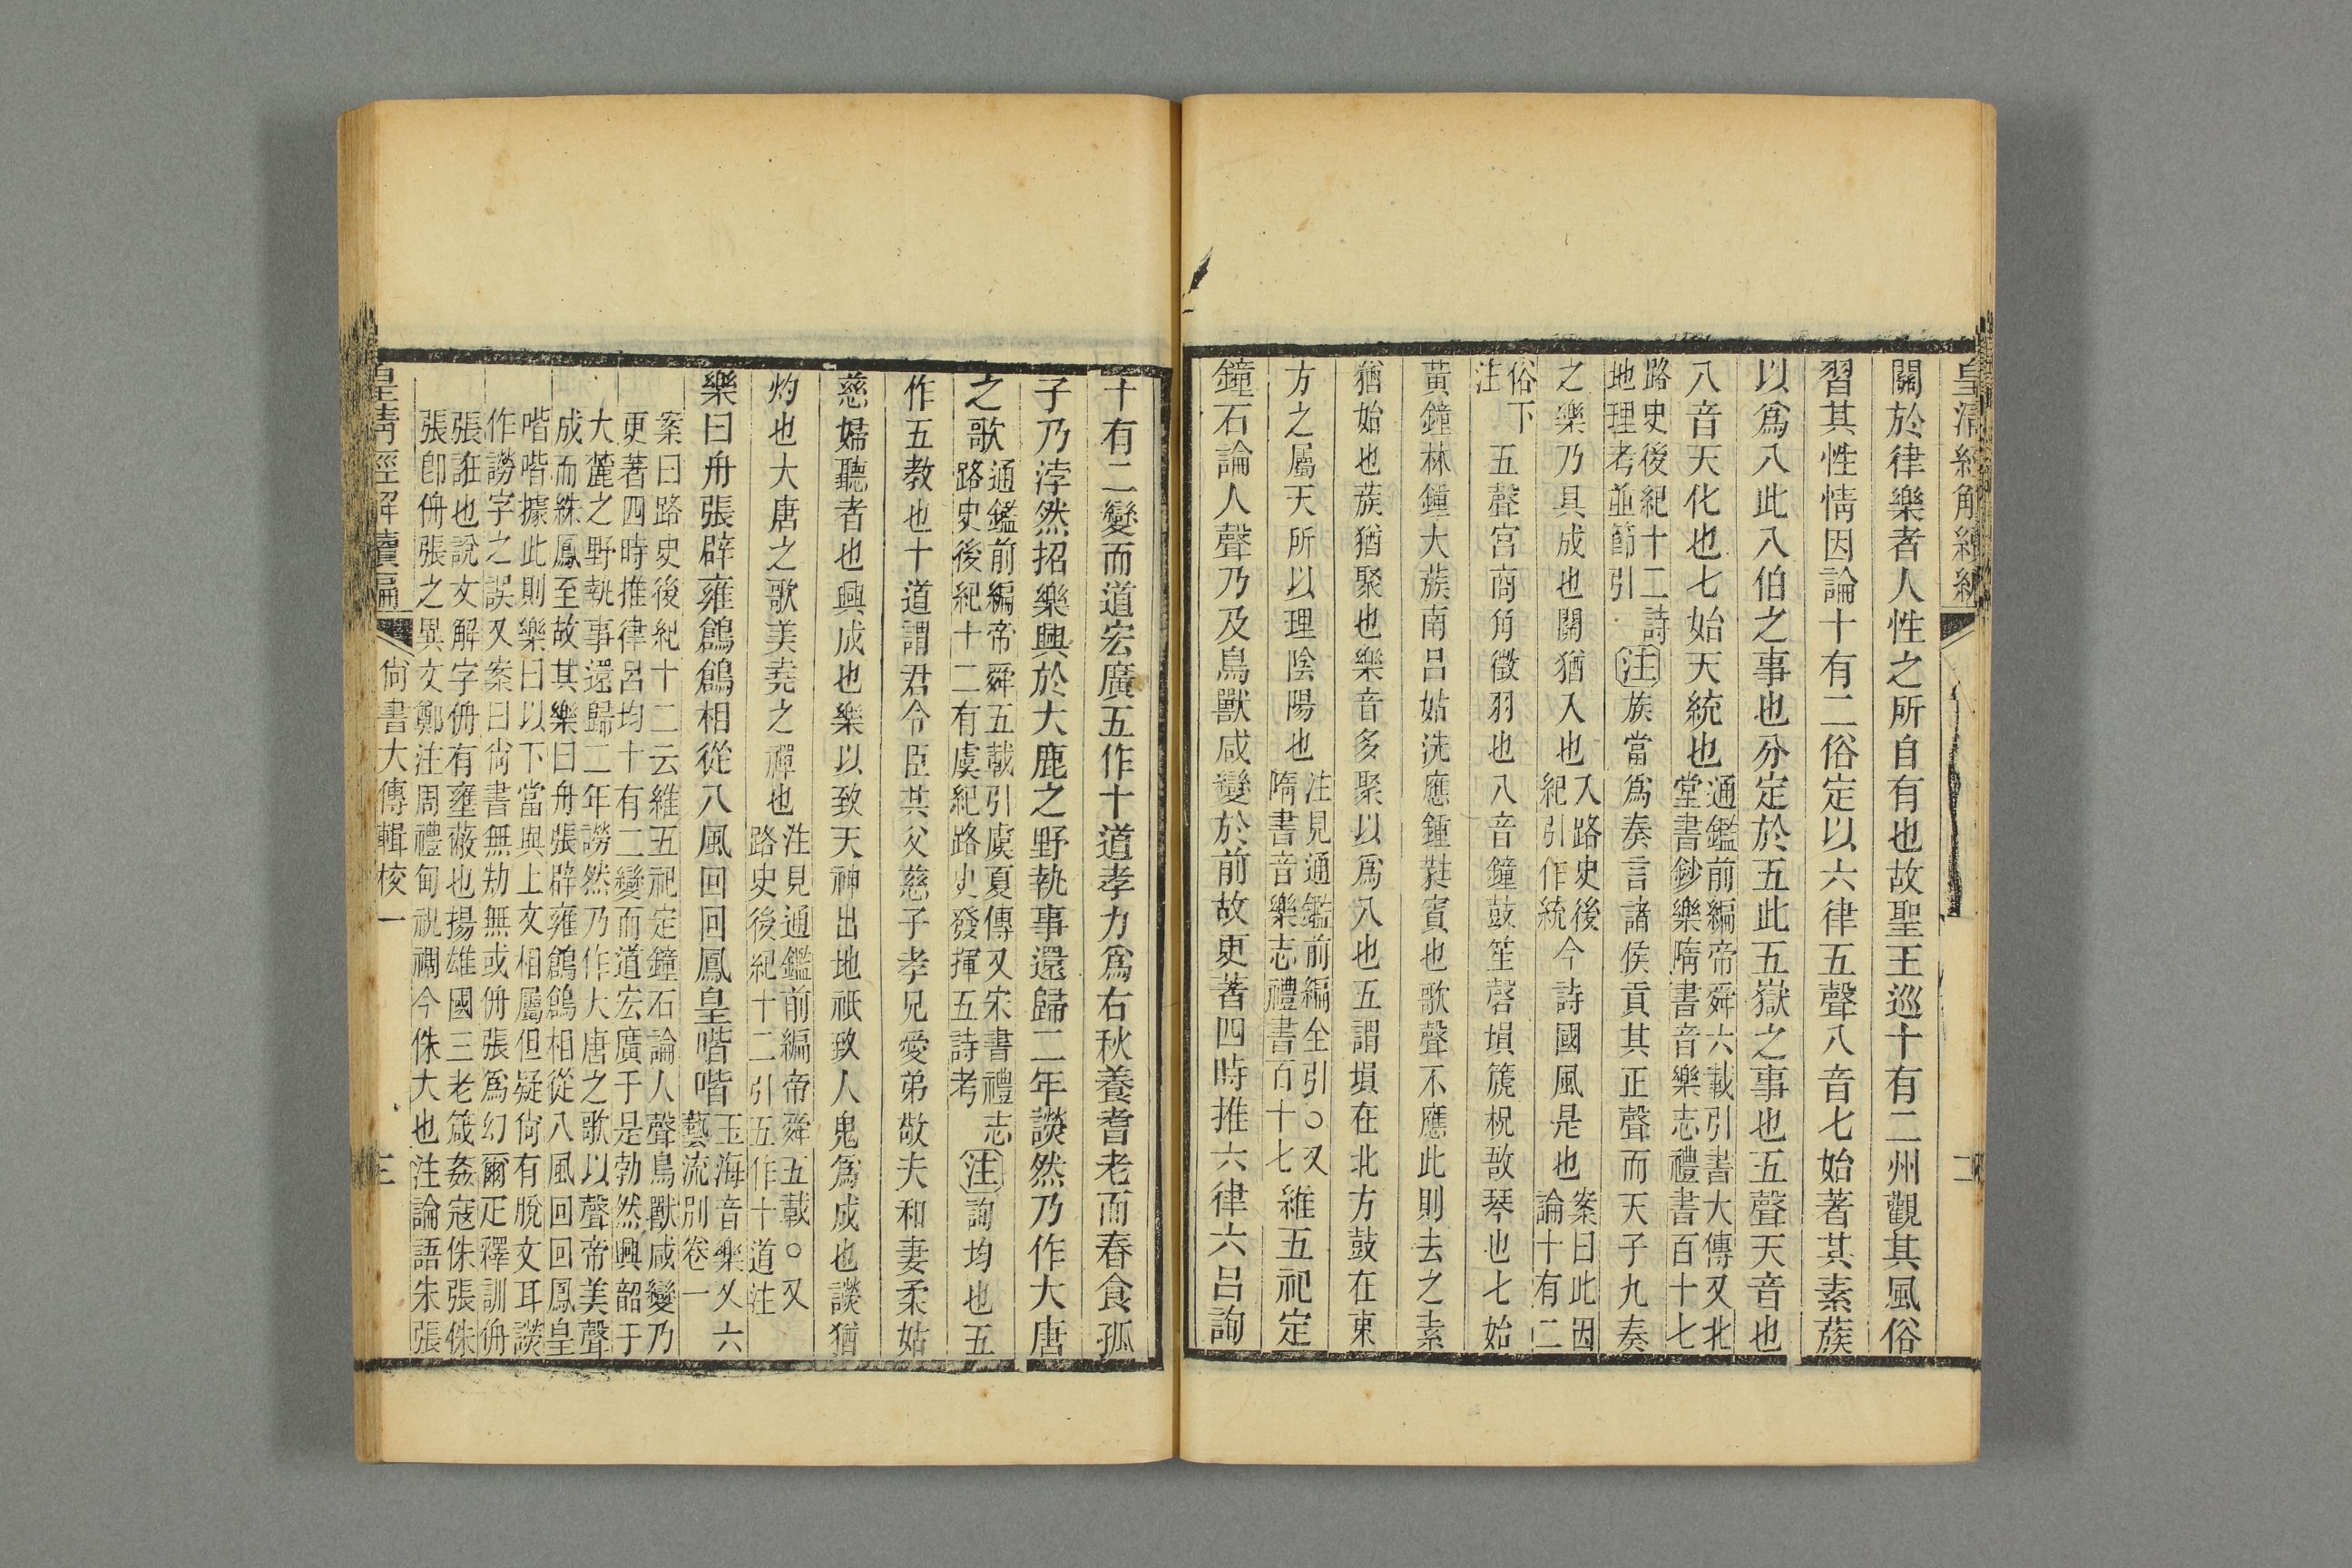 皇清經解續編
二
關於律樂者人性之所自有也故聖王巡十有二州觀其風俗
習其性情因論十有二俗定以六律五聲八音七始著其素蔟
以爲八此八伯之事也分定於五此五嶽之事也五聲天音也
八音天化也七始天統也通鑑前編帝舜六載引書大傳又北
堂書鈔樂隋書音樂志禮書百十七
路史後紀十二詩
地理考並節引注族當爲奏言諸侯貢其正聲而天子九奏
之樂乃具成也關猶入也入路史後
紀引作統今詩國風是也案曰此因
論十有二
俗下
注五聲宮商角徵羽也八音鐘鼓笙磬塤篪柷敔琴也七始
黃鐘林鍾大蔟南呂姑洗應鍾蕤賓也歌聲不應此則去之素
猶始也蔟猶聚也樂音多聚以爲八也五謂塤在北方鼓在東
方之屬天所以理陰陽也注見通鑑前編全引○又
隋書音樂志禮書百十七維五祀定
鐘石論人聲乃及鳥獸咸變於前故更著四時推六律六呂詢
十有二變而道宏廣五作十道孝力爲右秋養耆老而春食孤
子乃浡然招樂興於大鹿之野執事還歸二年談然乃作大唐
之歌通鑑前編帝舜五載引虞夏傳又宋書禮志
路史後紀十二有虞紀路史發揮五詩考注詢均也五
作五教也十道謂君令臣其父慈子孝兄愛弟敬夫和妻柔姑
慈婦聽者也興成也樂以致天神出地祇致人鬼爲成也談猶
灼也大唐之歌美堯之禪也注見通鑑前編帝舜五載○又
路史後紀十二引五作十道注
樂曰舟張辟雍鶬鶬相從八風回回鳳皇喈喈玉海音樂又六
藝流別卷一
案曰路史後紀十二云維五祀定鐘石論人聲鳥獸咸變乃
更著四時推律呂均十有二變而道宏廣于是勃然興韶于
大麓之野執事還歸二年謗然乃作大唐之歌以聲帝美聲
成而絑鳳至故其樂曰舟張辟雍鶬鶬相從八風回回鳳皇
喈喈據此則樂曰以下當與上文相屬但疑尙有脫文耳談
作謗字之誤又案曰尙書無劮無或侜張爲幻爾疋釋訓侜
張誑也說文解字侜有壅蔽也揚雄國三老箴姦寇侏張侏
張卽侜張之異文鄭注周禮甸祝禂今侏大也注論語朱張
皇清經解續編
尙書大傳輯校一
三